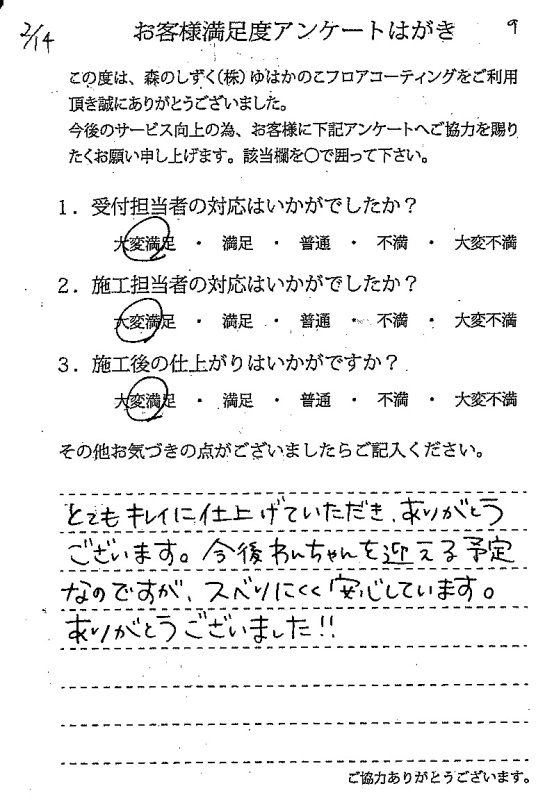 2/14
お客様満足度アンケートはがき
9
この度は、森のしずく(株)ゆはかのこフロアコーティングをご利用
頂き誠にありがとうございました。
今後のサービス向上の為、お客様に下記アンケートへご協力を賜り
たくお願い申し上げます。該当欄を〇で囲って下さい。
1．受付担当者の対応はいかがでしたか？
大変満足 ・ 満足 ・ 普通 ・ 不満 ・ 大変不満
2．施工担当者の対応はいかがでしたか？
大変満足 ・ 満足 ・ 普通 ・ 不満 ・ 大変不満
3．施工後の仕上がりはいかがですか？
大変満足 ・ 満足 ・ 普通 ・ 不満 ・ 大変不満
その他お気づきの点がございましたらご記入ください。
とてもキレイに仕上げていただき、ありがとう
ございます。今後わんちゃんを迎える予定
なのですが、スベリにくく安心しています。
ありがとうございました!!
ご協力ありがとうございます。